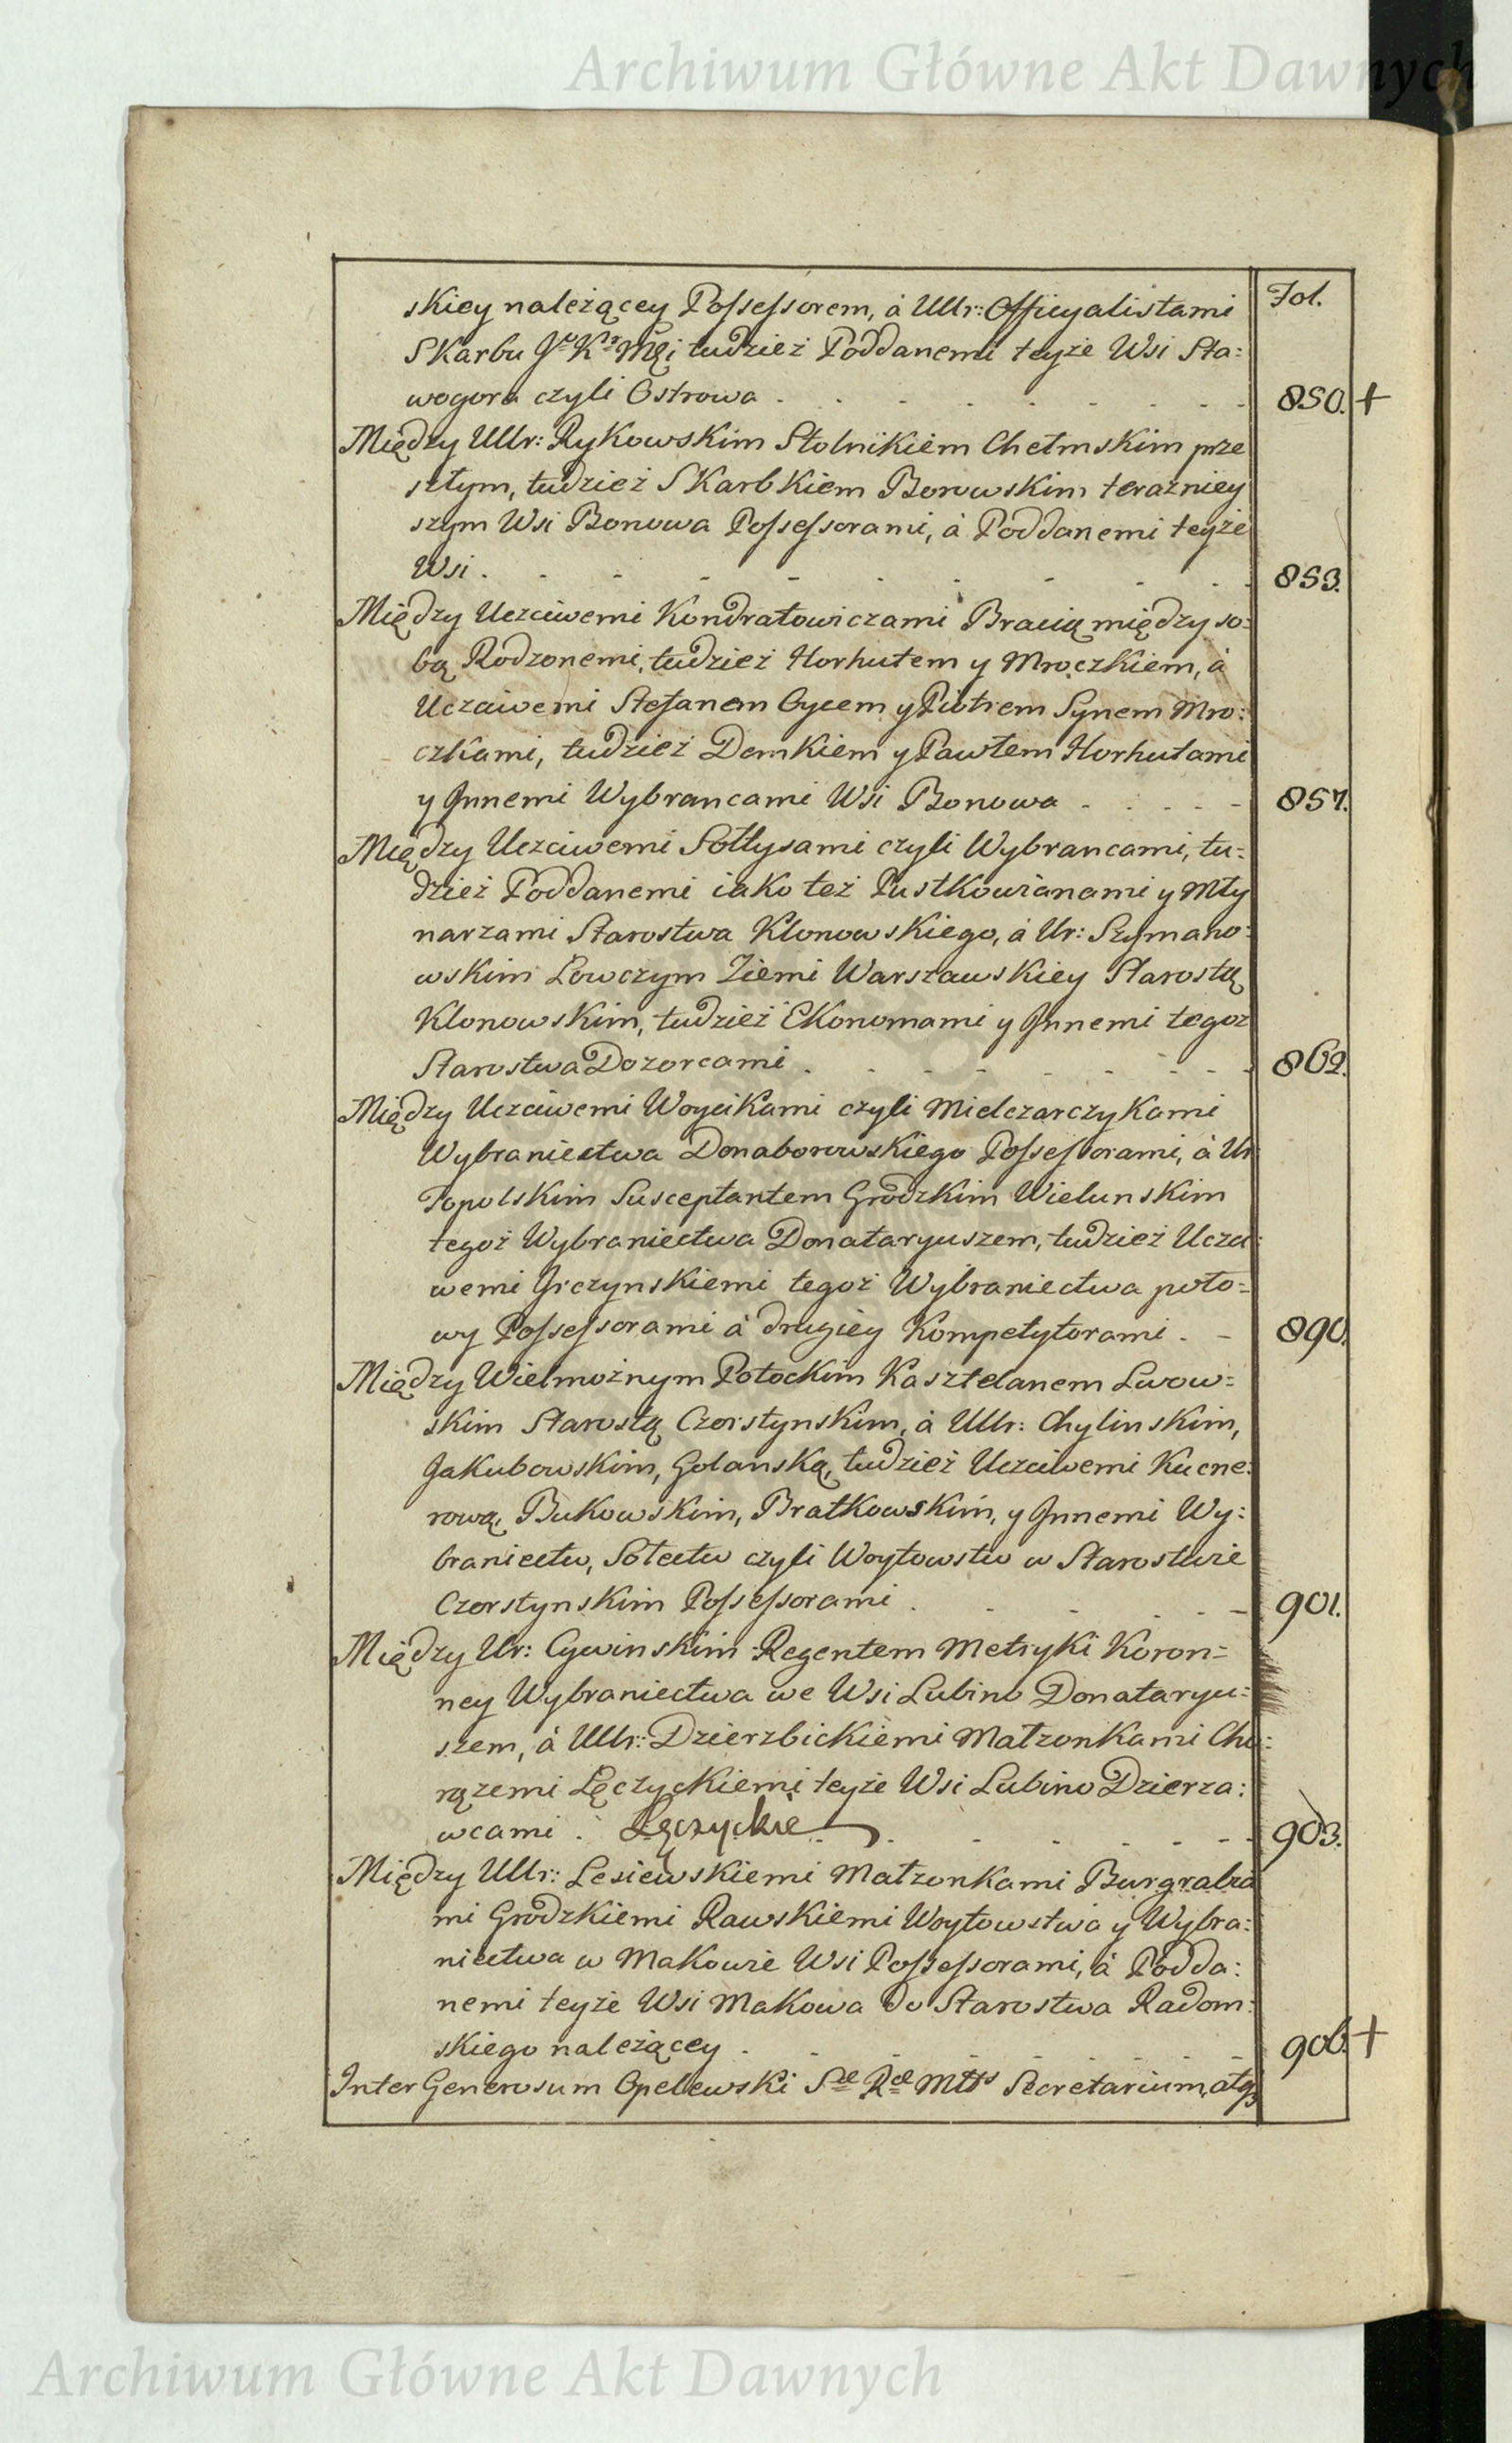 Archiwum Główne Akt Dawnych
Fol.
skiey należącey Possessorem, á Ullr: Officyalistami
Skarbu Jo Kr Mći tudzież Poddanemi teyże Wsi Sta=
wogora czyli Ostrowa . - - - 850. +
Między Ullr: Rykowskim Stolnikiem Chełmskim prze
szłym, tudzież Skarbkiem Borowskim teraźniey
szym Wsi Bonowa Possessorami, á Poddanemi teyże
Wsi . - - - 853.
Między Uczciwemi Kondratowiczami Bracią między so=
bą Rodzonemi, tudzież Horhutem y Mroczkiem, á
Uczciwemi Stefanem Oycem y Piotrem Synem Mro:
czkami, tudzież Demkiem y Pawłem Horhutami
y Jnnemi Wybrancami Wsi Bonowa - - - 857.
Między Uczciwemi Sołtysami czyli Wybrancami, tu=
dzież Poddanemi iako też Pustkowianami y Mły
narzami Starostwa Klonowskiego, á Ur: Szymano=
wskim Łowczym Ziemi Warszawskiey Starostą
Klonowskim, tudzież Ekonomami y Jnnemi tegoż
Starostwa Dozorcami . - - - 862.
Między Uczciwemi Woycikami czyli Mielczarczykami
Wybraniectwa Donaborowskiego Possessorami, á Ur
Topolskim Susceptantem Grodzkim Wielunskim
tegoż Wybraniectwa Donataryuszem, tudzież Uczci=
wemi Jrczynskiemi tegoż Wybraniectwa poło=
wy Possessorami á drugiey Kompetytorami . - 890.
Między Wielmożnym Potockim Kasztelanem Lwow=
skim Starostą Czorstynskim, á Ullr: Chylinskim,
Jakubowskim, Golanską, tudzież Uczciwemi Kucne=
rową, Bukowskim, Bratkowskim, y Jnnemi Wy:
braniectw, Sołectw czyli Woytowstw w Starostwie
Czorstynskim Possessorami . - - - 901.
Między Ur: Cywinskim Regentem Metryki Koron=
ney Wybraniectwa we Wsi Lubino Donataryu=
szem, á Ullr: Dzierzbickiemi Małżonkami Cho=
rążemi Łęczyckiemi teyże Wsi Lubino Dzierża:
wcami . Łęczyckie - - - 903.
Między Ullr: Lesiewskiemi Małżonkami Burgrabia
mi Grodzkiemi Rawskiemi Woytowstwa y Wybra=
niectwa w Makowie Wsi Possessorami, á Podda:
nemi teyże Wsi Makowa do Starostwa Radom=
skiego należącey . - - - 906. +
Inter Generosum Opelewski Sae Rae Mttis Secretarium, atq3
Archiwum Główne Akt Dawnych